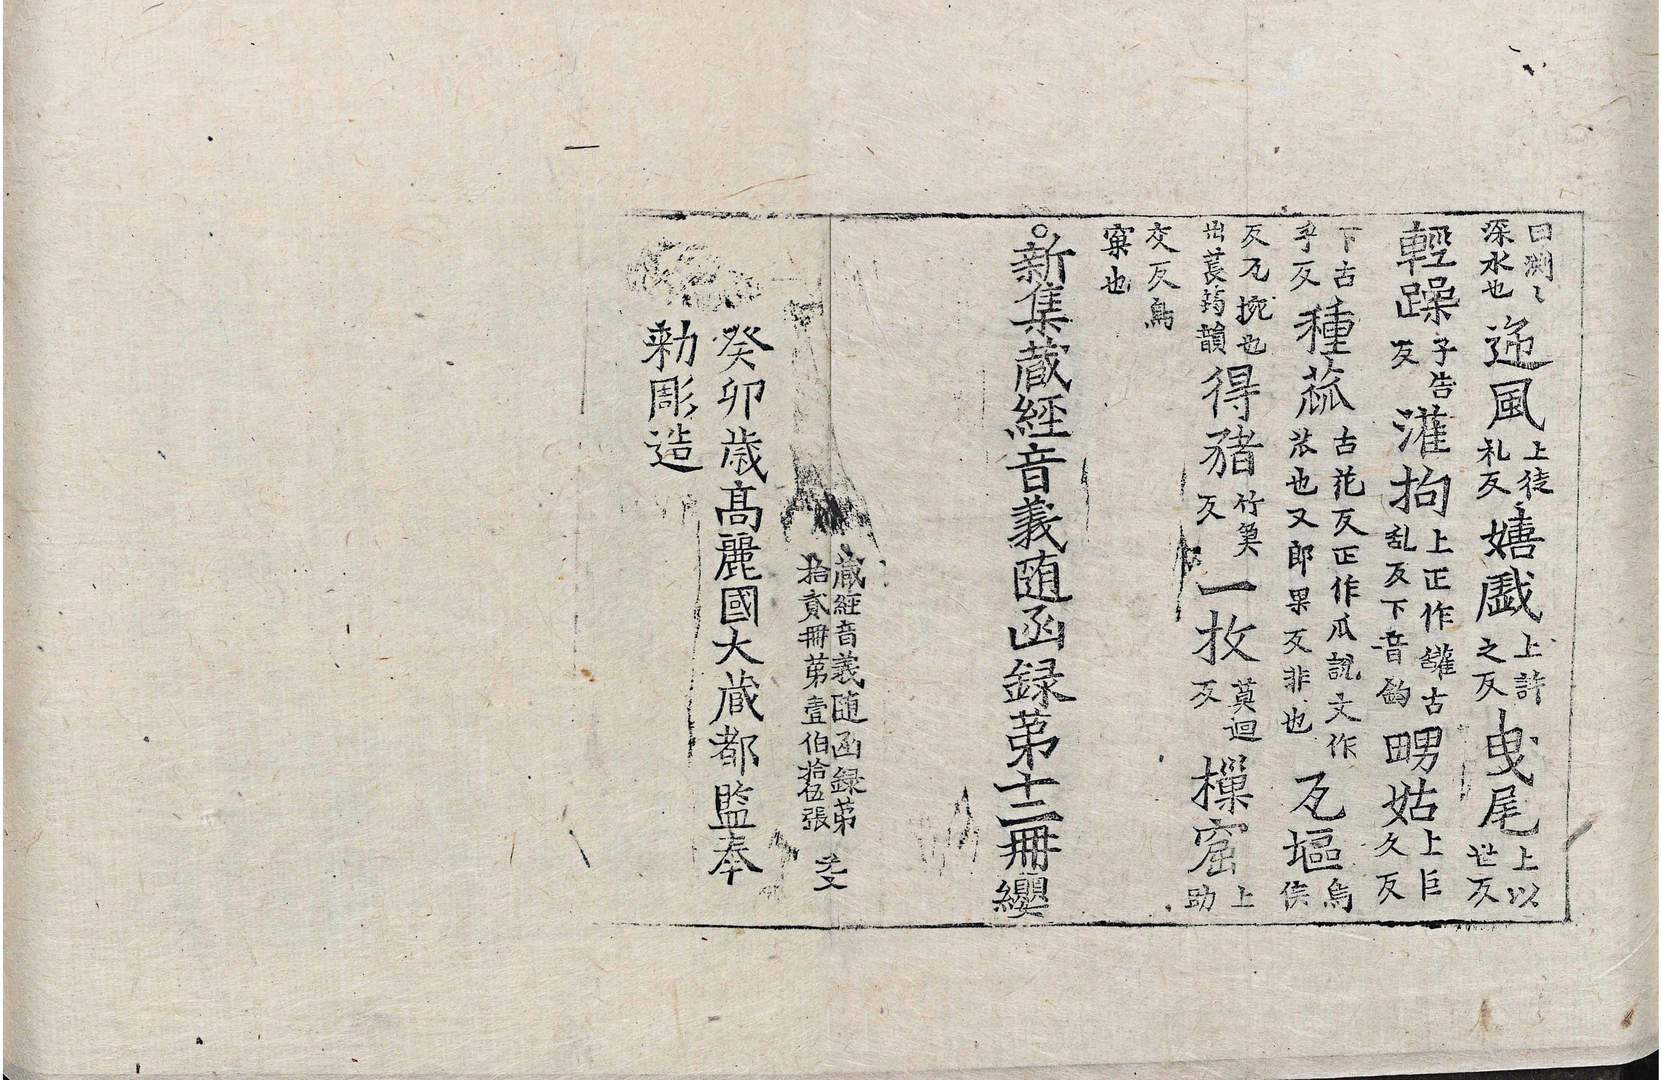 曰渕〻深水也 迯風 上徒礼反 嬉戱 上許之反 曳尾 上以世反
輕躁 子告反 灌拘 上正作鑵古乱反下音鈎 甥姑 上巨久反
下古乎反 種菰 古花反正作瓜說文作苽也又郎果反非也 瓦塸 烏侯
反瓦椀也出萇筠韻 得猪 竹奠反 一枚 莫迴反 樔窟 上助
交反鳥窠也
○新集蔵經音義随函録第十二冊 纓
蔵經音義随函録第
拾貳冊第壹伯拾伍張
癸卯歳髙麗國大蔵都監奉
勅彫造